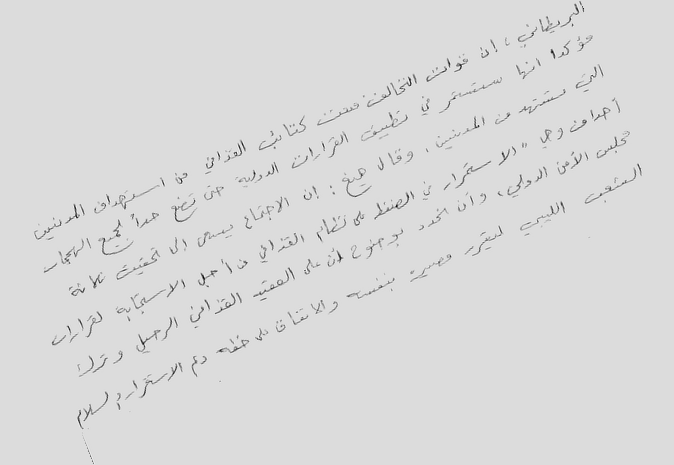 البريطاني، إن قوات التحالف منعت كتائب القذافي من استهداف المدنيين
مؤكدا انها ستستمر في تطبيق القرارات الدولية حتى تضع حداً لجميع الهجمات
التي تستهدف المدنيين، وقال هيغ: إن الاجتماع يسعى إلى تحقيق ثلاثة
أهداف وهي "الاستمرار في الضغط على نظام القذافي من أجل الاستجابة لقرارات
مجلس الأمن الدولي، وأن نحدد بوضوح أن على العقيد القذافي الرحيل وترك
الشعب الليبي ليقرر مصيره بنفسه والاتفاق على خطة دعم الاستقرار والسلام